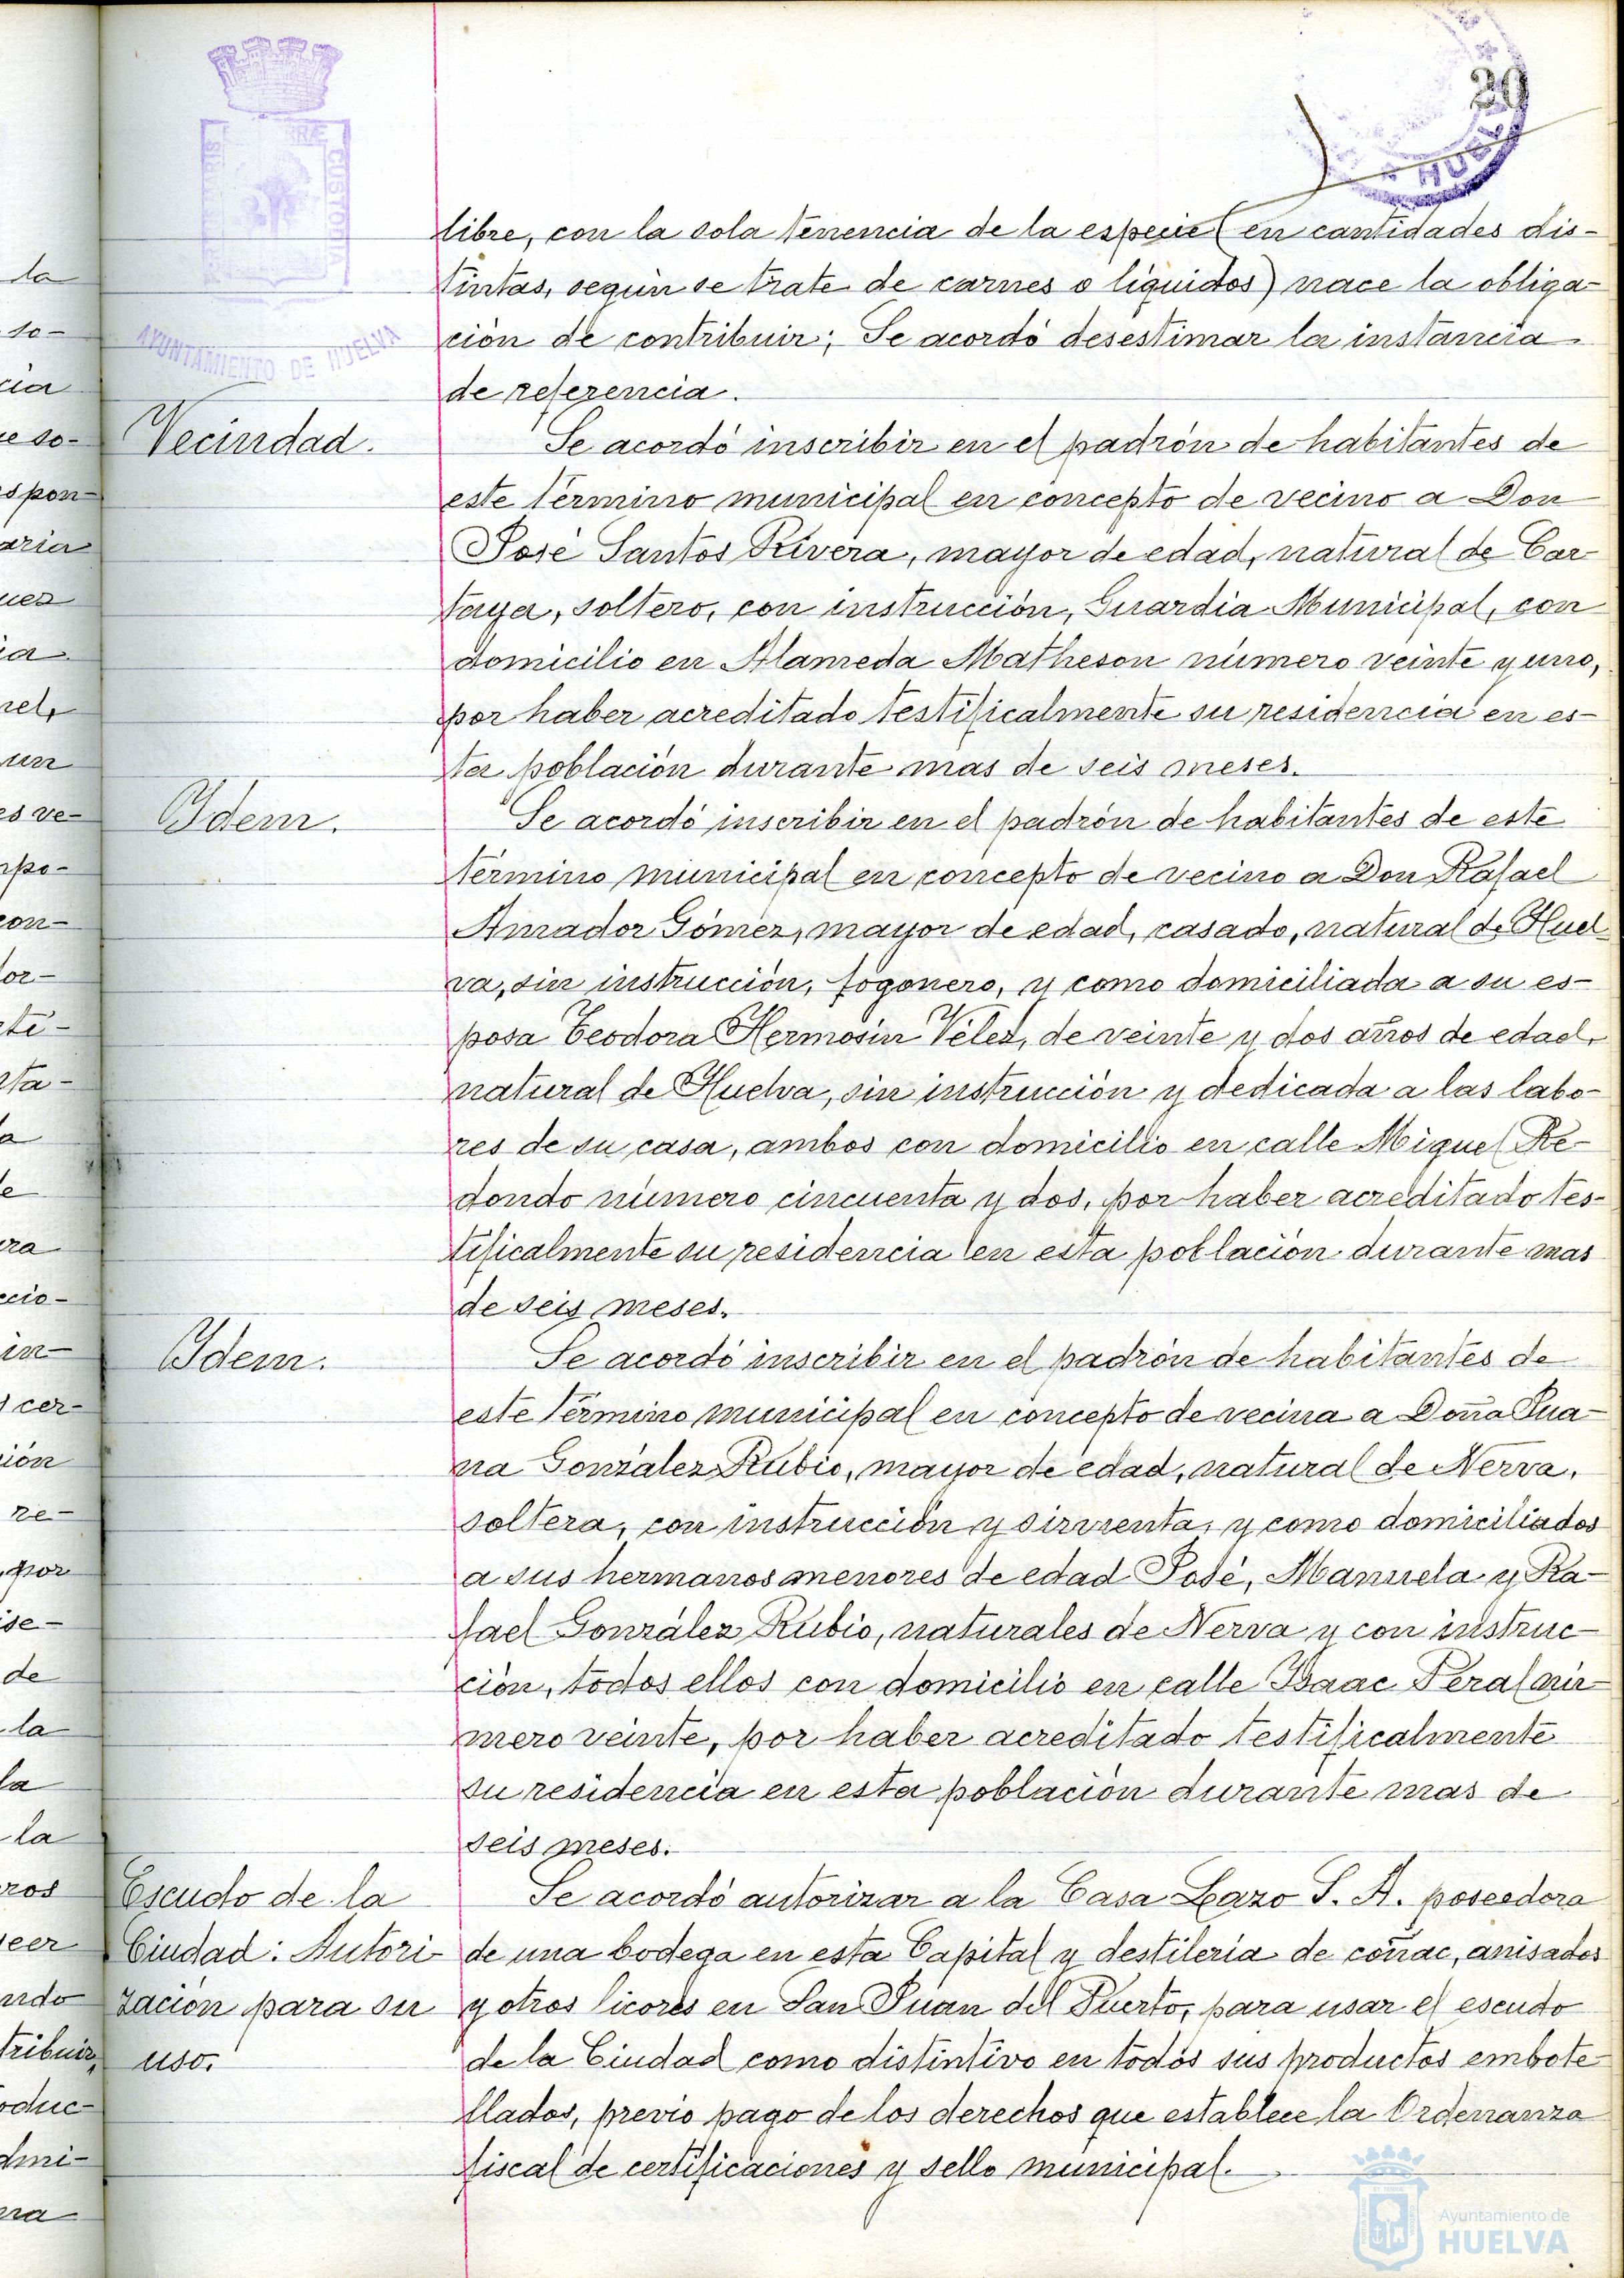 20
HUELV
AYUNTAMIENTO DE HUELVA
CUSTODIA
libre, con la sola tenencia de la especie (en cantidades dis-
tintas, según se trate de carnes o líquidos) nace la obliga-
ción de contribuir; Se acordó desestimar la instancia
de referencia.
Vecindad.
Se acordó inscribir en el padrón de habitantes de
este término municipal en concepto de vecino a Don
José Santos Rivera, mayor de edad, natural de Car-
taya, soltero, con instrucción, Guardia Municipal, con
domicilio en Alameda Matheson número veinte y uno,
por haber acreditado testificalmente su residencia en es-
ta población durante mas de seis meses.
Idem.
Se acordó inscribir en el padrón de habitantes de este
término municipal en concepto de vecino a Don Rafael
Amador Gómez, mayor de edad, casado, natural de Huel-
va, sin instrucción, fogonero, y como domiciliada a su es-
posa Teodora Hermosin Vélez, de veinte y dos años de edad,
natural de Huelva, sin instrucción y dedicada a las labo-
res de su casa, ambos con domicilio en calle Miguel Re-
dondo número cincuenta y dos, por haber acreditado tes-
tificalmente su residencia en esta población durante mas
de seis meses.
Idem.
Se acordó inscribir en el padrón de habitantes de
este término municipal en concepto de vecina a Doña Jua-
na González Rubio, mayor de edad, natural de Nerva,
soltera, con instrucción y sirvienta, y como domiciliados
a sus hermanos menores de edad José, Manuela y Ra-
fael González Rubio, naturales de Nerva y con instruc-
ción, todos ellos con domicilio en calle Isaac Peral nú-
mero veinte, por haber acreditado testificalmente
su residencia en esta población durante mas de
seis meses.
Escudo de la
Ciudad: Autori-
zación para su
uso.
Se acordó autorizar a la Casa Lazo S. A. poseedora
de una bodega en esta Capital y destilería de coñac, anisados
y otros licores en San Juan del Puerto, para usar el escudo
de la Ciudad como distintivo en todos sus productos embote-
llados, previo pago de los derechos que establece la Ordenanza
fiscal de certificaciones y sello municipal.
Ayuntamiento de
HUELVA